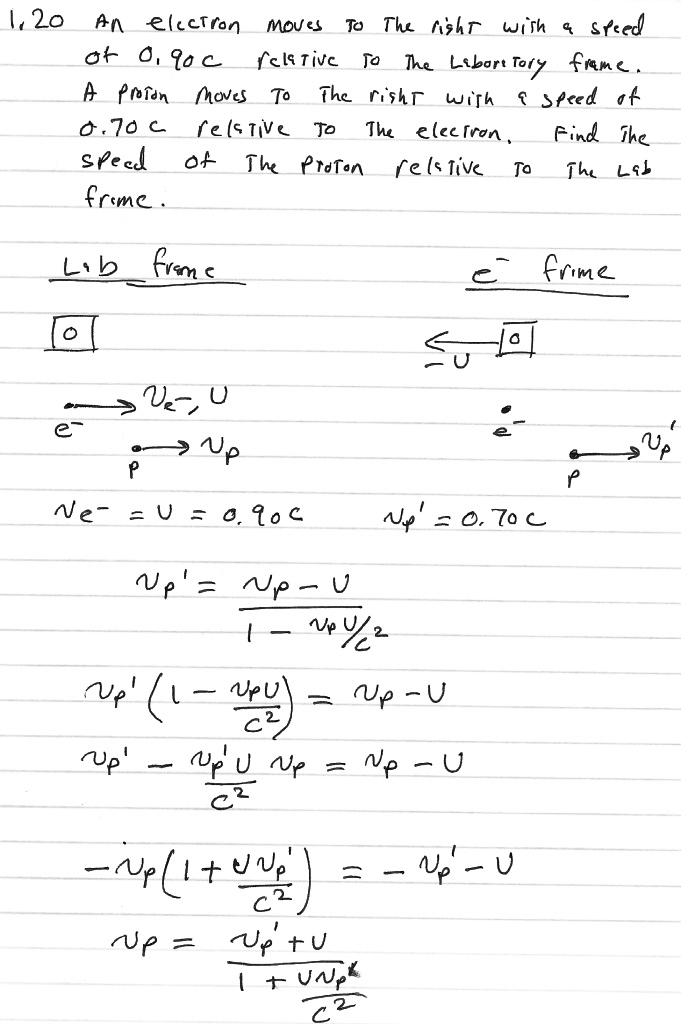 1.20 An electron moves to the right with a speed
of 0.90c relative to the Laboratory frame.
A proton moves to the right with a speed of
0.70c relative to the electron. Find the
speed of the proton relative to the Lab
frame.
Lab frame e⁻ frame
O O
-U
v_e⁻, U
e⁻ v_p e⁻ v_p'
p p
v_e⁻ = U = 0.90c v_p' = 0.70c
v_p' = (v_p - U) / (1 - v_pU/c²)
v_p' (1 - v_pU/c²) = v_p - U
v_p' - (v_p'U/c²) v_p = v_p - U
-v_p (1 + Uv_p'/c²) = -v_p' - U
v_p = (v_p' + U) / (1 + Uv_p'/c²)